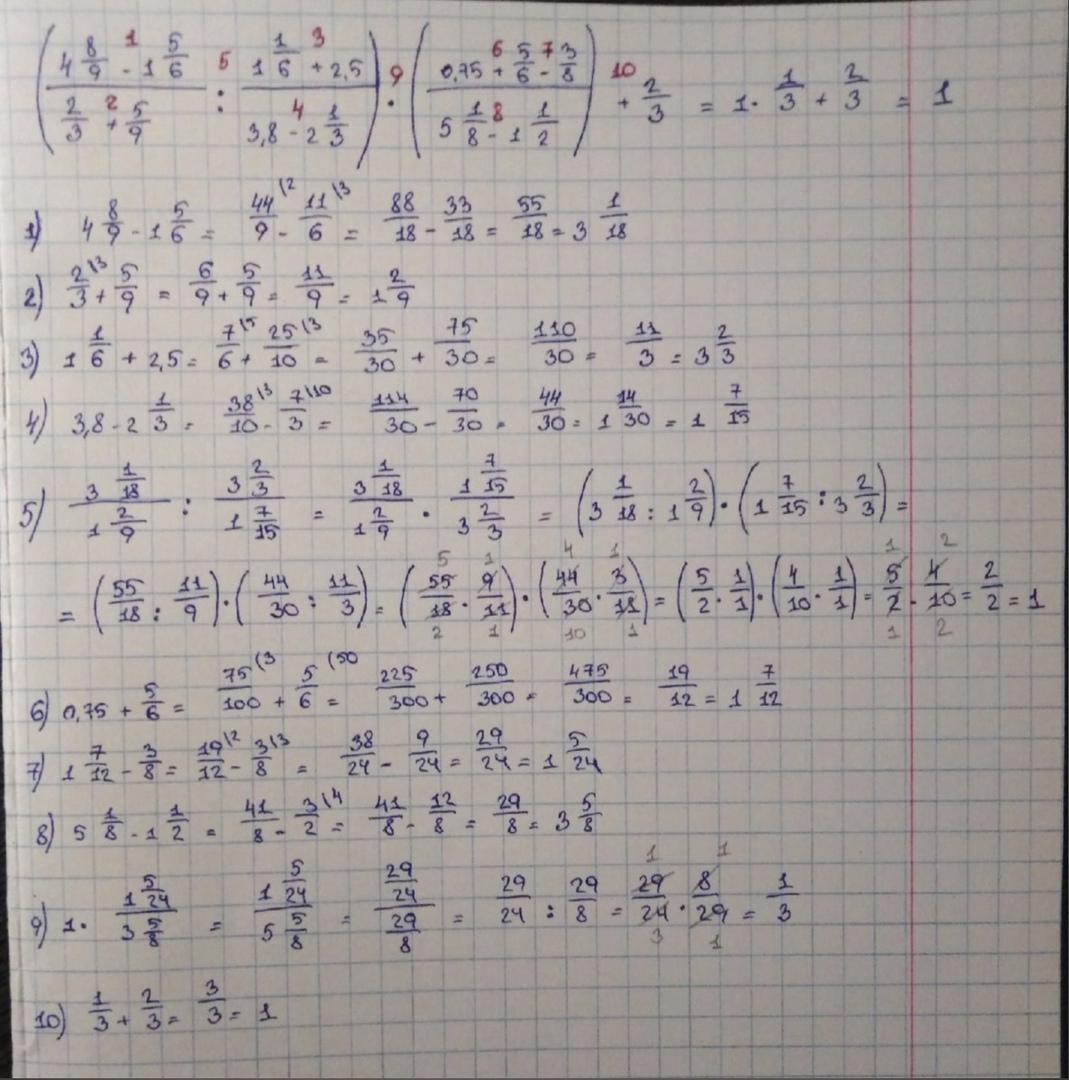 (4 8/9 - 1 5/6 / 2/3 + 5/9 : 1 1/6 + 2,5 / 3,8 - 2 1/3) · (0,75 + 5/6 - 3/8 / 5 1/8 - 1 1/2) + 2/3 = 1 · 1/3 + 2/3 = 1
1 2 3 4 5 6 7 8 9 10
1) 4 8/9 - 1 5/6 = 44/9 \2 - 11/6 \3 = 88/18 - 33/18 = 55/18 = 3 1/18
2) 2/3 \3 + 5/9 = 6/9 + 5/9 = 11/9 = 1 2/9
3) 1 1/6 + 2,5 = 7/6 \5 + 25/10 \3 = 35/30 + 75/30 = 110/30 = 11/3 = 3 2/3
4) 3,8 - 2 1/3 = 38/10 \3 - 7/3 \10 = 114/30 - 70/30 = 44/30 = 1 14/30 = 1 7/15
5) 3 1/18 / 1 2/9 : 3 2/3 / 1 7/15 = 3 1/18 / 1 2/9 · 1 7/15 / 3 2/3 = (3 1/18 : 1 2/9) · (1 7/15 : 3 2/3) =
= (55/18 : 11/9) · (44/30 : 11/3) = (55/18 · 9/11) · (44/30 · 3/11) = (5/2 · 1/1) · (4/10 · 1/1) = 5/2 · 4/10 = 2/2 = 1
5 1 4 1 1 2
2 1 10 1 1 2
6) 0,75 + 5/6 = 75/100 (3 + 5/6 (50 = 225/300 + 250/300 = 475/300 = 19/12 = 1 7/12
7) 1 7/12 - 3/8 = 19/12 \2 - 3/8 \3 = 38/24 - 9/24 = 29/24 = 1 5/24
8) 5 1/8 - 1 1/2 = 41/8 - 3/2 \4 = 41/8 - 12/8 = 29/8 = 3 5/8
9) 1 · 1 5/24 / 3 5/8 = 1 5/24 / 5 5/8 = 29/24 / 29/8 = 29/24 : 29/8 = 29/24 · 8/29 = 1/3
1 1
3 1
10) 1/3 + 2/3 = 3/3 = 1